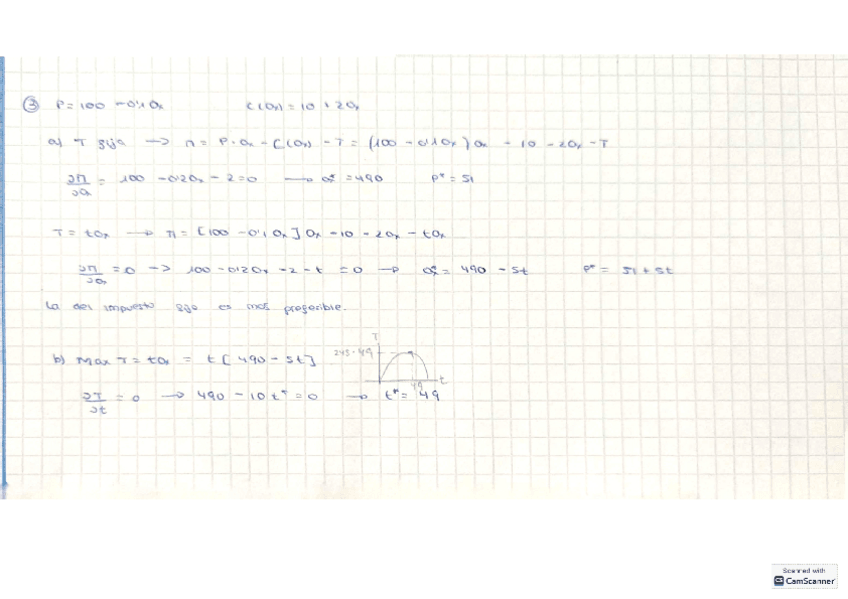 ③ P = 100 - 0'1Qx C(Qx) = 10 + 2Qx
a) T fija → π = P·Qx - C(Qx) - T = (100 - 0'1Qx)Qx - 10 - 2Qx - T
∂π/∂Qx = 100 - 0'2Qx - 2 = 0 → Qx* = 490 P* = 51
T = tQx → π = [100 - 0'1Qx]Qx - 10 - 2Qx - tQx
∂π/∂Qx = 0 → 100 - 0'2Qx - 2 - t = 0 → Qx* = 490 - 5t P* = 51 + 5t
La del impuesto fijo es más preferible.
b) Max T = tQx = t[490 - 5t]
T
245·49
49
t
∂T/∂t = 0 → 490 - 10t* = 0 → t* = 49
Scanned with
CS CamScanner